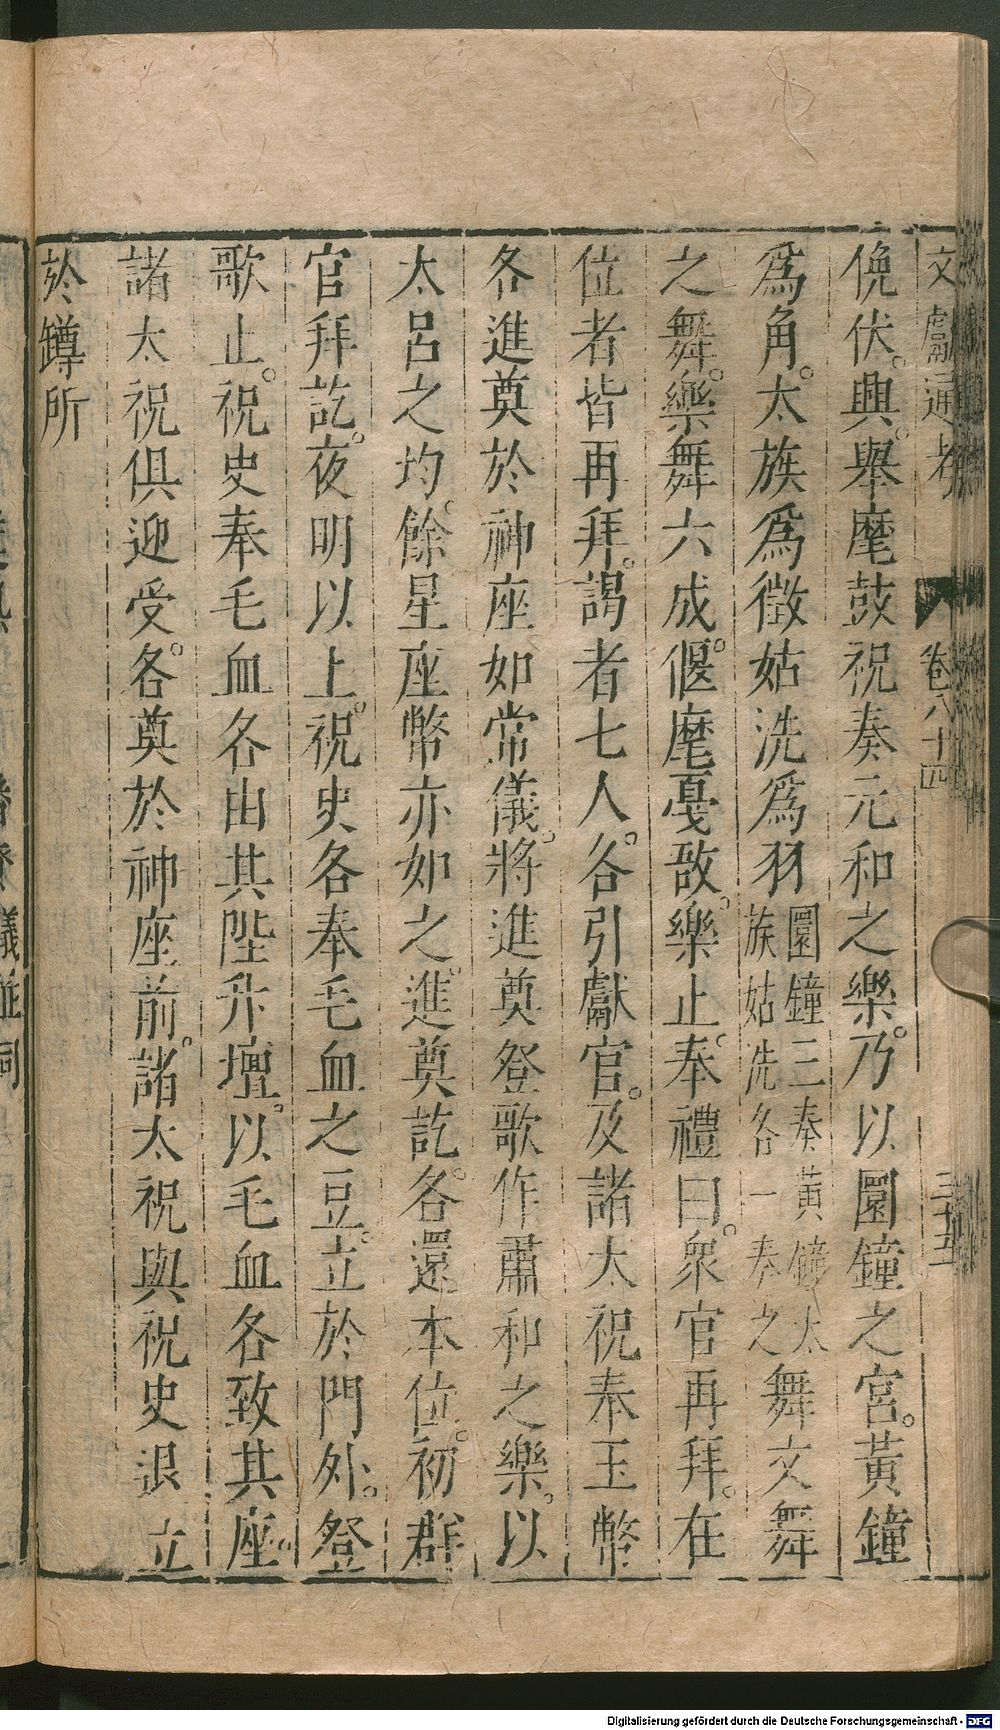 文獻通考 卷八十四 三十五
俛伏。興。舉麾鼓柷奏元和之樂。乃以圜鐘之宮。黃鐘
爲角。太族爲徵姑洗爲羽圜鐘三奏黃鐘太族姑洗各一奏之舞文舞
之舞。樂舞六成。偃麾戛敔。樂止。奉禮曰。衆官再拜。在
位者皆再拜。謁者七人。各引獻官。及諸太祝奉玉幣
各進奠於神座如常儀。將進奠登歌作肅和之樂。以
太呂之均。餘星座幣亦如之。進奠訖。各還本位。初群
官拜訖。夜明以上。祝史各奉毛血之豆。立於門外。登
歌止。祝史奉毛血各由其陛升壇。以毛血各致其座。
諸太祝俱迎受。各奠於神座前。諸太祝與祝史退立
於罇所
Digitalisierung gefördert durch die Deutsche Forschungsgemeinschaft - DFG